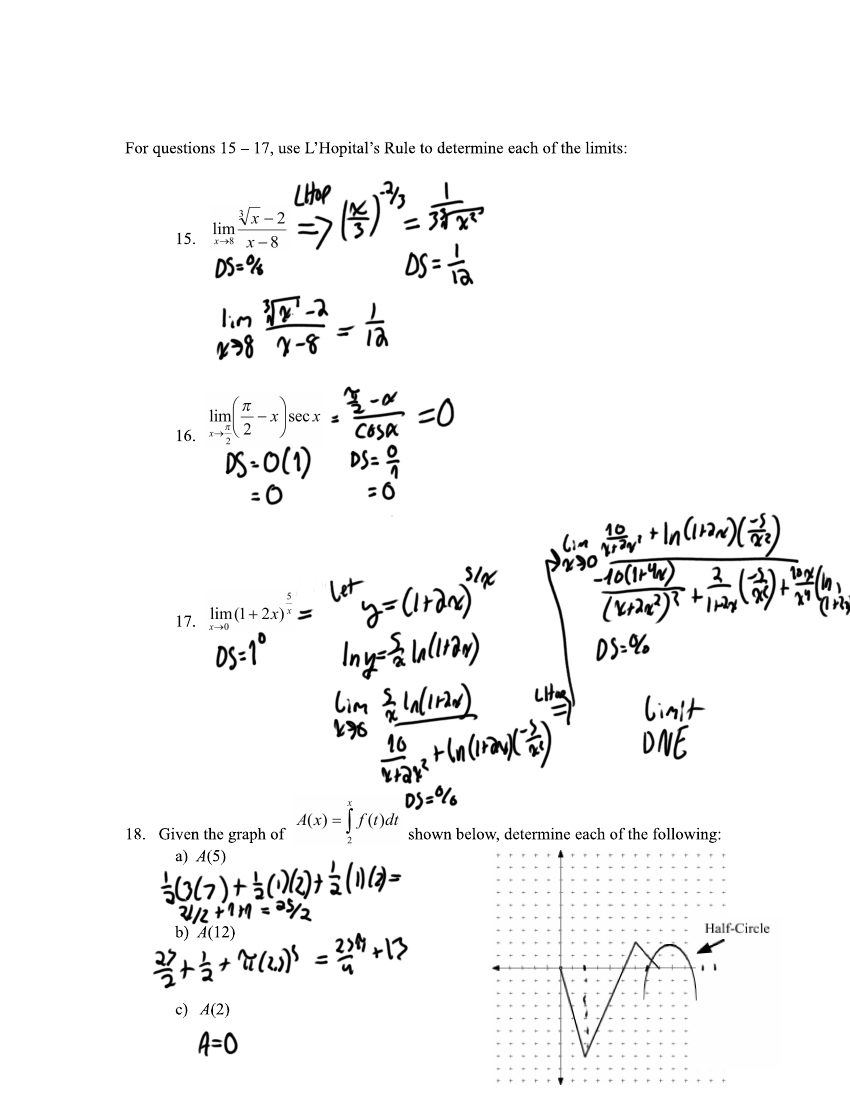 For questions 15 – 17, use L'Hopital's Rule to determine each of the limits:
15. lim x→8 (∛x − 2)/(x − 8) LHop ⇒ (x/3)^(-2/3) = 1/(3∛x²)
DS=0/0 DS=1/12
lim x→8 (∛x − 2)/(x−8) = 1/12
16. lim x→π/2 (π/2 − x) sec x = (π/2 − x)/cosx = 0
DS=0(1) DS=0/1
=0 =0
17. lim x→0 (1+2x)^(5/x) =
DS=1^0
Let y=(1+2x)^(5/x)
lny=5/x ln(1+2x)
Lim x→0 (5/x ln(1+2x))/(10/(x+2x²) + ln(1+2x)(-5/x²)) LHop ⇒
DS=0/0
Lim x→0 10/(x+2x²) + ln(1+2x)(-5/x²)
-10(1+4x)/(x+2x²)² + 2/(1+2x) (-5/x²) + 10x/x⁴ (ln(1+2x)
DS=0/0
Limit
DNE
18. Given the graph of A(x) = ∫₂ˣ f(t)dt shown below, determine each of the following:
a) A(5)
1/2(3)(7)+1/2(1)(2)+1/2(1)(2)=
21/2+1+1 = 25/2
b) A(12)
25/2+1/2+π(2.5)²
c) A(2)
A=0
Half-Circle